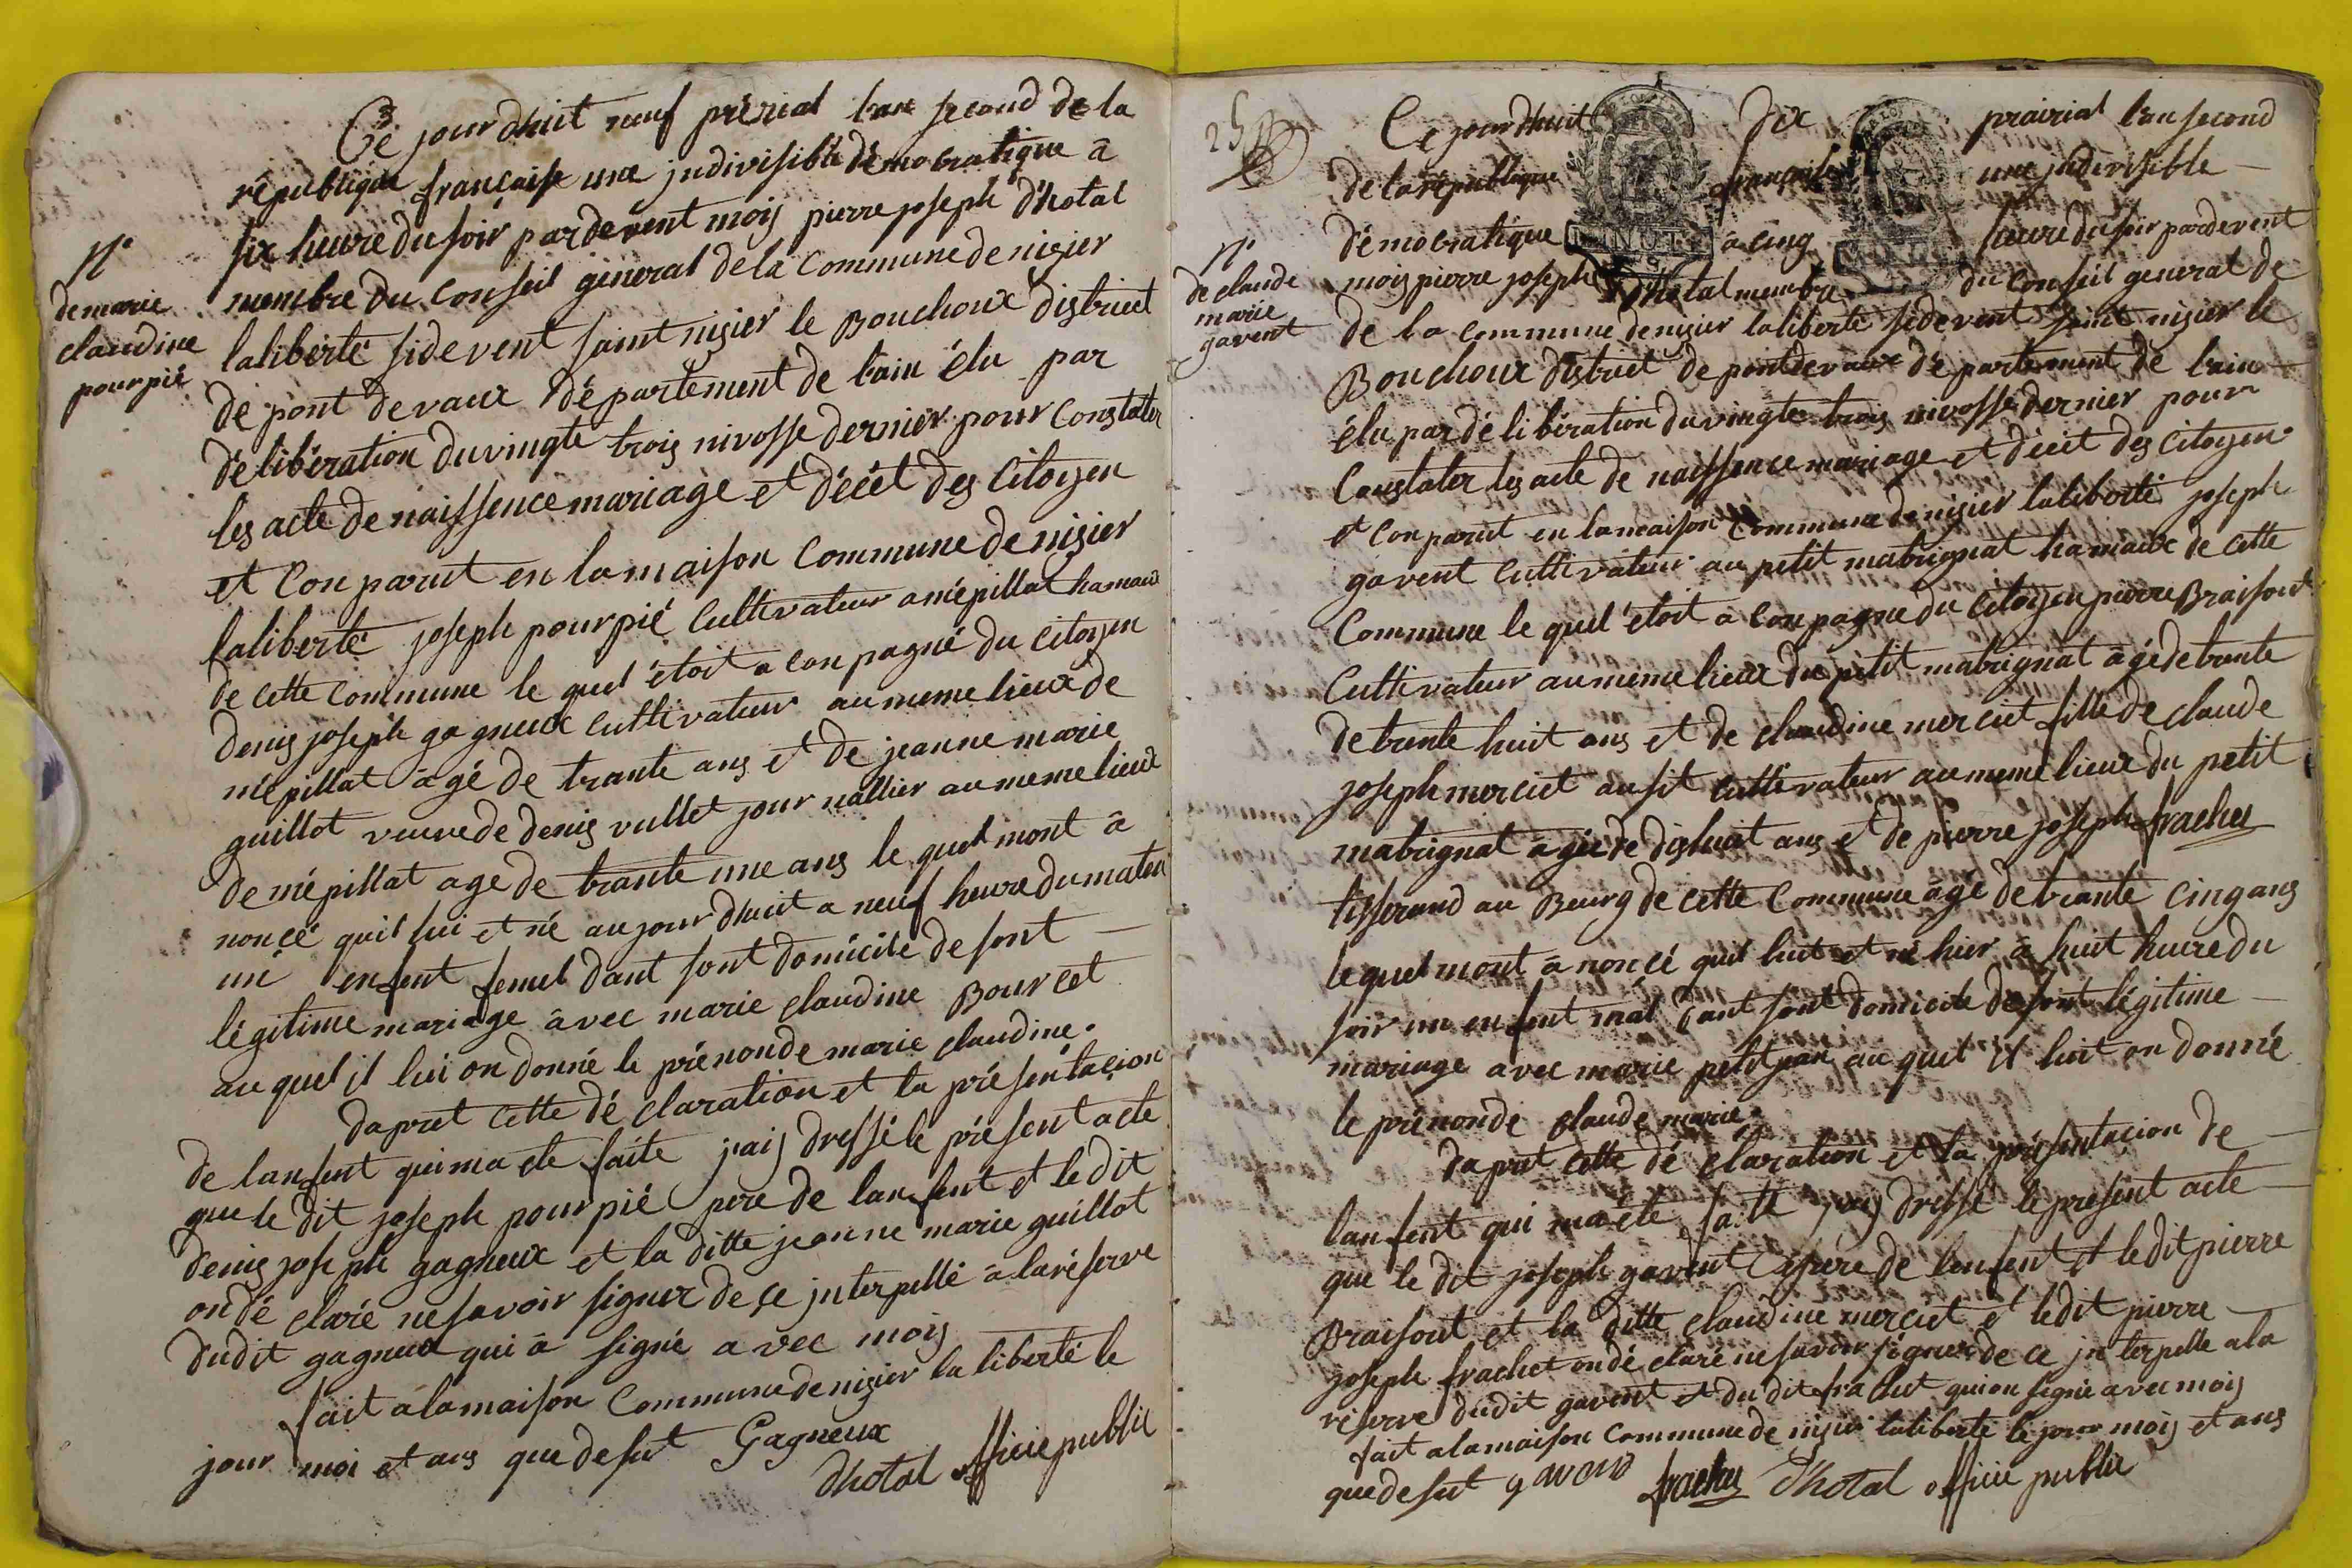 Ce jourdhuit neuf prérial lan second de la
république françaisse une jndivisible démocratique à
six heure du soir pardevent mois pierre joseph d'hotal
N.e
membre du conseil géneral de la commune de nisier
de marie
claudine
pourpié
laliberté sidevent saint nisier le Bouchoux district
de pont devaux département de lain élu par
délibération du vingte trois nivosse dernier pour constater
les acte de naissence mariage et décét des citoyen
et conparut en la maison commune de nisier
laliberté joseph pourpié cultivateur a mépillat hamaux
de cette commune le quel étoit a conpagné du citoyen
denis joseph gagneux cultivateur au meme lieux de
mépillat âgé de trante ans et de jeanne marie
guillot veuve de denis vullet journallier au meme lieux
de mépillat age de trante une ans le quel mont à
noncé quil lui et né aujourdhuit a neuf heure du maten
uné enfent femel dant sont domicile de sont —
légitime mariage àvec marie claudine Bourcet
auquel il lui on donné le prénonde marie claudine.
dapret cette déclaration et la présentacion
de lanfent qui ma ete faite jais dressé le présent acte
que le dit joseph pourpié pere de lanfent et le dit
denis joseph gagneux et la ditte jeanne marie guillot
on déclaré ne savoir signer de ce jnterpellé à la réserve
dudit gagneux qui à signé avec mois
fait a la maison commune de nisier la liberté le
jour moi et ans que desut Gagneux
dhotal officie public
25
Ce jourdhuit dix prairial lan second
de la république française une jndivisible —
démocratique à cinq heure du soir pardevent
MINUTE
N.e
de claude
marie
gavent
mois pierre joseph d'hotal membre du conseil general de
de la commune de nisier laliberté sidevent saint nisier le
Bouchoux district de pontdevaux département de lain
élu par délibération du vingte trois nivosse dernier pour
constater les acte de naissence mariage et décét des citoyen
et conparut en la maison commune de nisier laliberté joseph
gavent cultivateur au petit matrignat hamaux de cette
commune le quel étoit a conpagne du citoyen pierre Braisout
cultivateur au meme lieux du petit matrignat âgé de trante
de trante huit ans et de claudine merciet fille de claude
joseph merciet ausit cultivateur au meme lieux du petit
matrignat âgée de dishuit ans et de pierre joseph frachet
tisserand au Bourg de cette commune âgé de trante cinq ans
lequel mont à noncé quil luit et né hier à huit heure du
soir un enfent mal dant sont domicile de sont légitime —
mariage avec marie petitjean au quel il luit on donné
le prénonde claude marie.
dapret cette déclaration et la présentacion de —
lanfent qui ma été faite jais dressé le present acte —
que le dit joseph gavent pere de lenfent et le dit pierre
Braisout et la ditte claudine merciet et ledit pierre —
joseph frachet on déclaré ne savoir signer de ce jnterpelle a la
réserve dudit gavent et dudit frachet qui on signé avec mois
fait a la maison commune de nisier laliberté le jour mois et ans
que desut gavend frachet d'hotal officie public